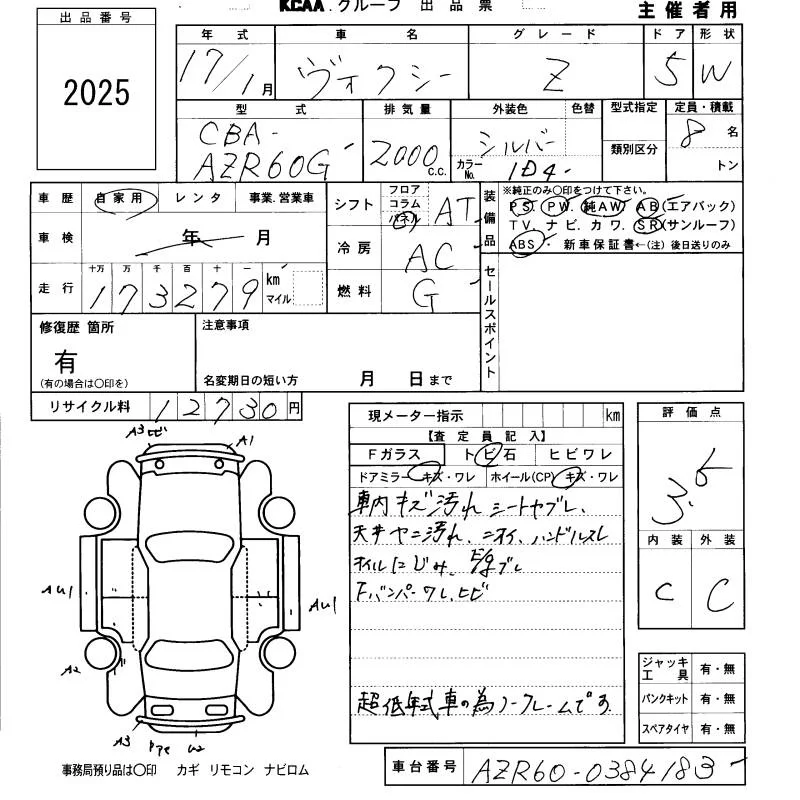 出品番号
2025
KCAA.グループ 出品票
主催者用
年式 車名 グレード ドア 形状
17/1月 ヴォクシー Z 5 W
型式 排気量 外装色 色替 型式指定 定員・積載
CBA-
AZR60G 2000 c.c. シルバー カラーNo. 1D4 類別区分 8名
トン
車歴 自家用 レンタ 事業.営業車
車検 年 月
走行 十万 万 千 百 十 一
173279 km マイル
シフト フロア コラム パネル AT
冷房 AC
燃料 G
装備品 ※純正のみ○印をつけて下さい。
PS. PW. 純AW. AB(エアバック)
TV. ナビ. カワ. SR(サンルーフ)
ABS・新車保証書←(注)後日送りのみ
セールスポイント
修復歴 箇所
有
(有の場合は○印を)
注意事項
名変期日の短い方 月 日まで
リサイクル料 12730円
現メーター指示 km
【査定員記入】
Fガラス トビ石 ヒビワレ
ドアミラー キズ・ワレ ホイール(CP) キズ・ワレ
車内キズ汚れ シートヤブレ、
天井ヤニ汚れ、ニオイ、ハンドルスレ
オイルにじみ、E/gブレ
Fバンパーワレ、ヒビ
超低年式車の為ノークレームです
評価点
3.5
内装 外装
C C
ジャッキ工具 有・無
パンクキット 有・無
スペアタイヤ 有・無
A3 ヒビ A1
AU1 AU1
A2
A3 U2
事務局預り品は○印 カギ リモコン ナビロム
車台番号 AZR60-0384183